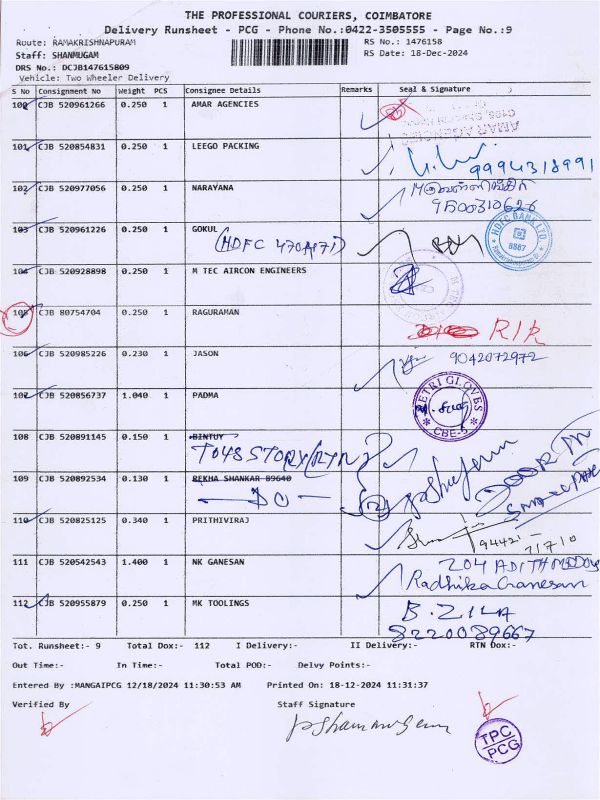 THE PROFESSIONAL COURIERS, COIMBATORE
Delivery Runsheet - PCG - Phone No.:0422-3505555 - Page No.:9
Route: RAMAKRISHNAPURAM
RS No.: 1476158
Staff: SHANMUGAM
RS Date: 18-Dec-2024
DRS No.: DCJB147615809
Vehicle: Two Wheeler Delivery
S No Consignment No Weight PCS Consignee Details Remarks Seal & Signature
100 CJB 520961266 0.250 1 AMAR AGENCIES
AMAR AGENCIES
101 CJB 520854831 0.250 1 LEEGO PACKING
9994318991
102 CJB 520977056 0.250 1 NARAYANA
9500310626
103 CJB 520961226 0.250 1 GOKUL
(HDFC
HDFC BANK LTD.
8887
104 CJB 520928898 0.250 1 M TEC AIRCON ENGINEERS
105 CJB 80754704 0.250 1 RAGURAMAN
RIR
106 CJB 520985226 0.230 1 JASON
9042072972
107 CJB 520856737 1.040 1 PADMA
VETRI GLOVES
CBE-6
108 CJB 520891145 0.150 1 BINTUY
TOYS STORY (RTN)
109 CJB 520892534 0.130 1 REKHA SHANKAR 89640
— DO —
DOOR
110 CJB 520825125 0.340 1 PRITHIVIRAJ
94421-
71710
111 CJB 520542543 1.400 1 NK GANESAN
204
Radhika Ganesan
112 CJB 520955879 0.250 1 MK TOOLINGS
B. ZILA
8220089667
Tot. Runsheet:- 9 Total Dox:- 112 I Delivery:- II Delivery:- RTN Dox:-
Out Time:- In Time:- Total POD:- Delvy Points:-
Entered By :MANGAIPCG 12/18/2024 11:30:53 AM Printed On: 18-12-2024 11:31:37
Verified By Staff Signature
P Shanmugam
TPC
PCG